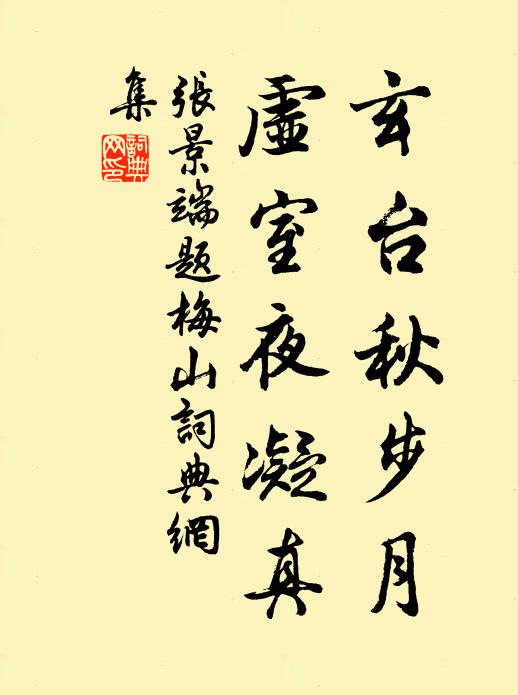 玄台秋步月
虚室夜凝真
張景端题梅山詞典網
集
詞典
网印